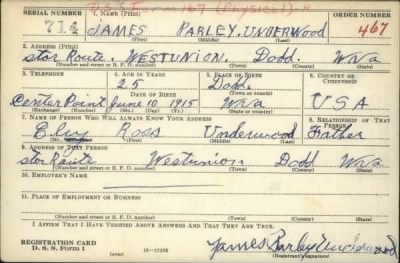 D.S.S. Form 167 (Physical)-H
SERIAL NUMBER 1. NAME (Print) ORDER NUMBER
JAMES PARLEY UNDERWOOD 467
(First) (Middle) (Last)
2. ADDRESS (Print)
star Route. WESTUNION. Dodd. Wva
(Number and street or R. F. D. number) (Town) (County) (State)
3. TELEPHONE 4. AGE IN YEARS 5. PLACE OF BIRTH 6. COUNTRY OF CITIZENSHIP
25 Dodd.
DATE OF BIRTH (Town or county)
Center Point June 10 1915 Wva USA
(Exchange) (Number) (Mo.) (Day) (Yr.) (State or country)
7. NAME OF PERSON WHO WILL ALWAYS KNOW YOUR ADDRESS 8. RELATIONSHIP OF THAT PERSON
Elroy Ross Underwood Father
(First) (Middle) (Last)
9. ADDRESS OF THAT PERSON
star Route Westunion Dodd Wva
(Number and street or R. F. D. number) (Town) (County) (State)
10. EMPLOYER'S NAME
11. PLACE OF EMPLOYMENT OR BUSINESS
(Number and street or R. F. D. number) (Town) (County) (State)
I AFFIRM THAT I HAVE VERIFIED ABOVE ANSWERS AND THAT THEY ARE TRUE.
REGISTRATION CARD
D. S. S. Form 1 (over) James Parley Underwood
(Registrant's signature)